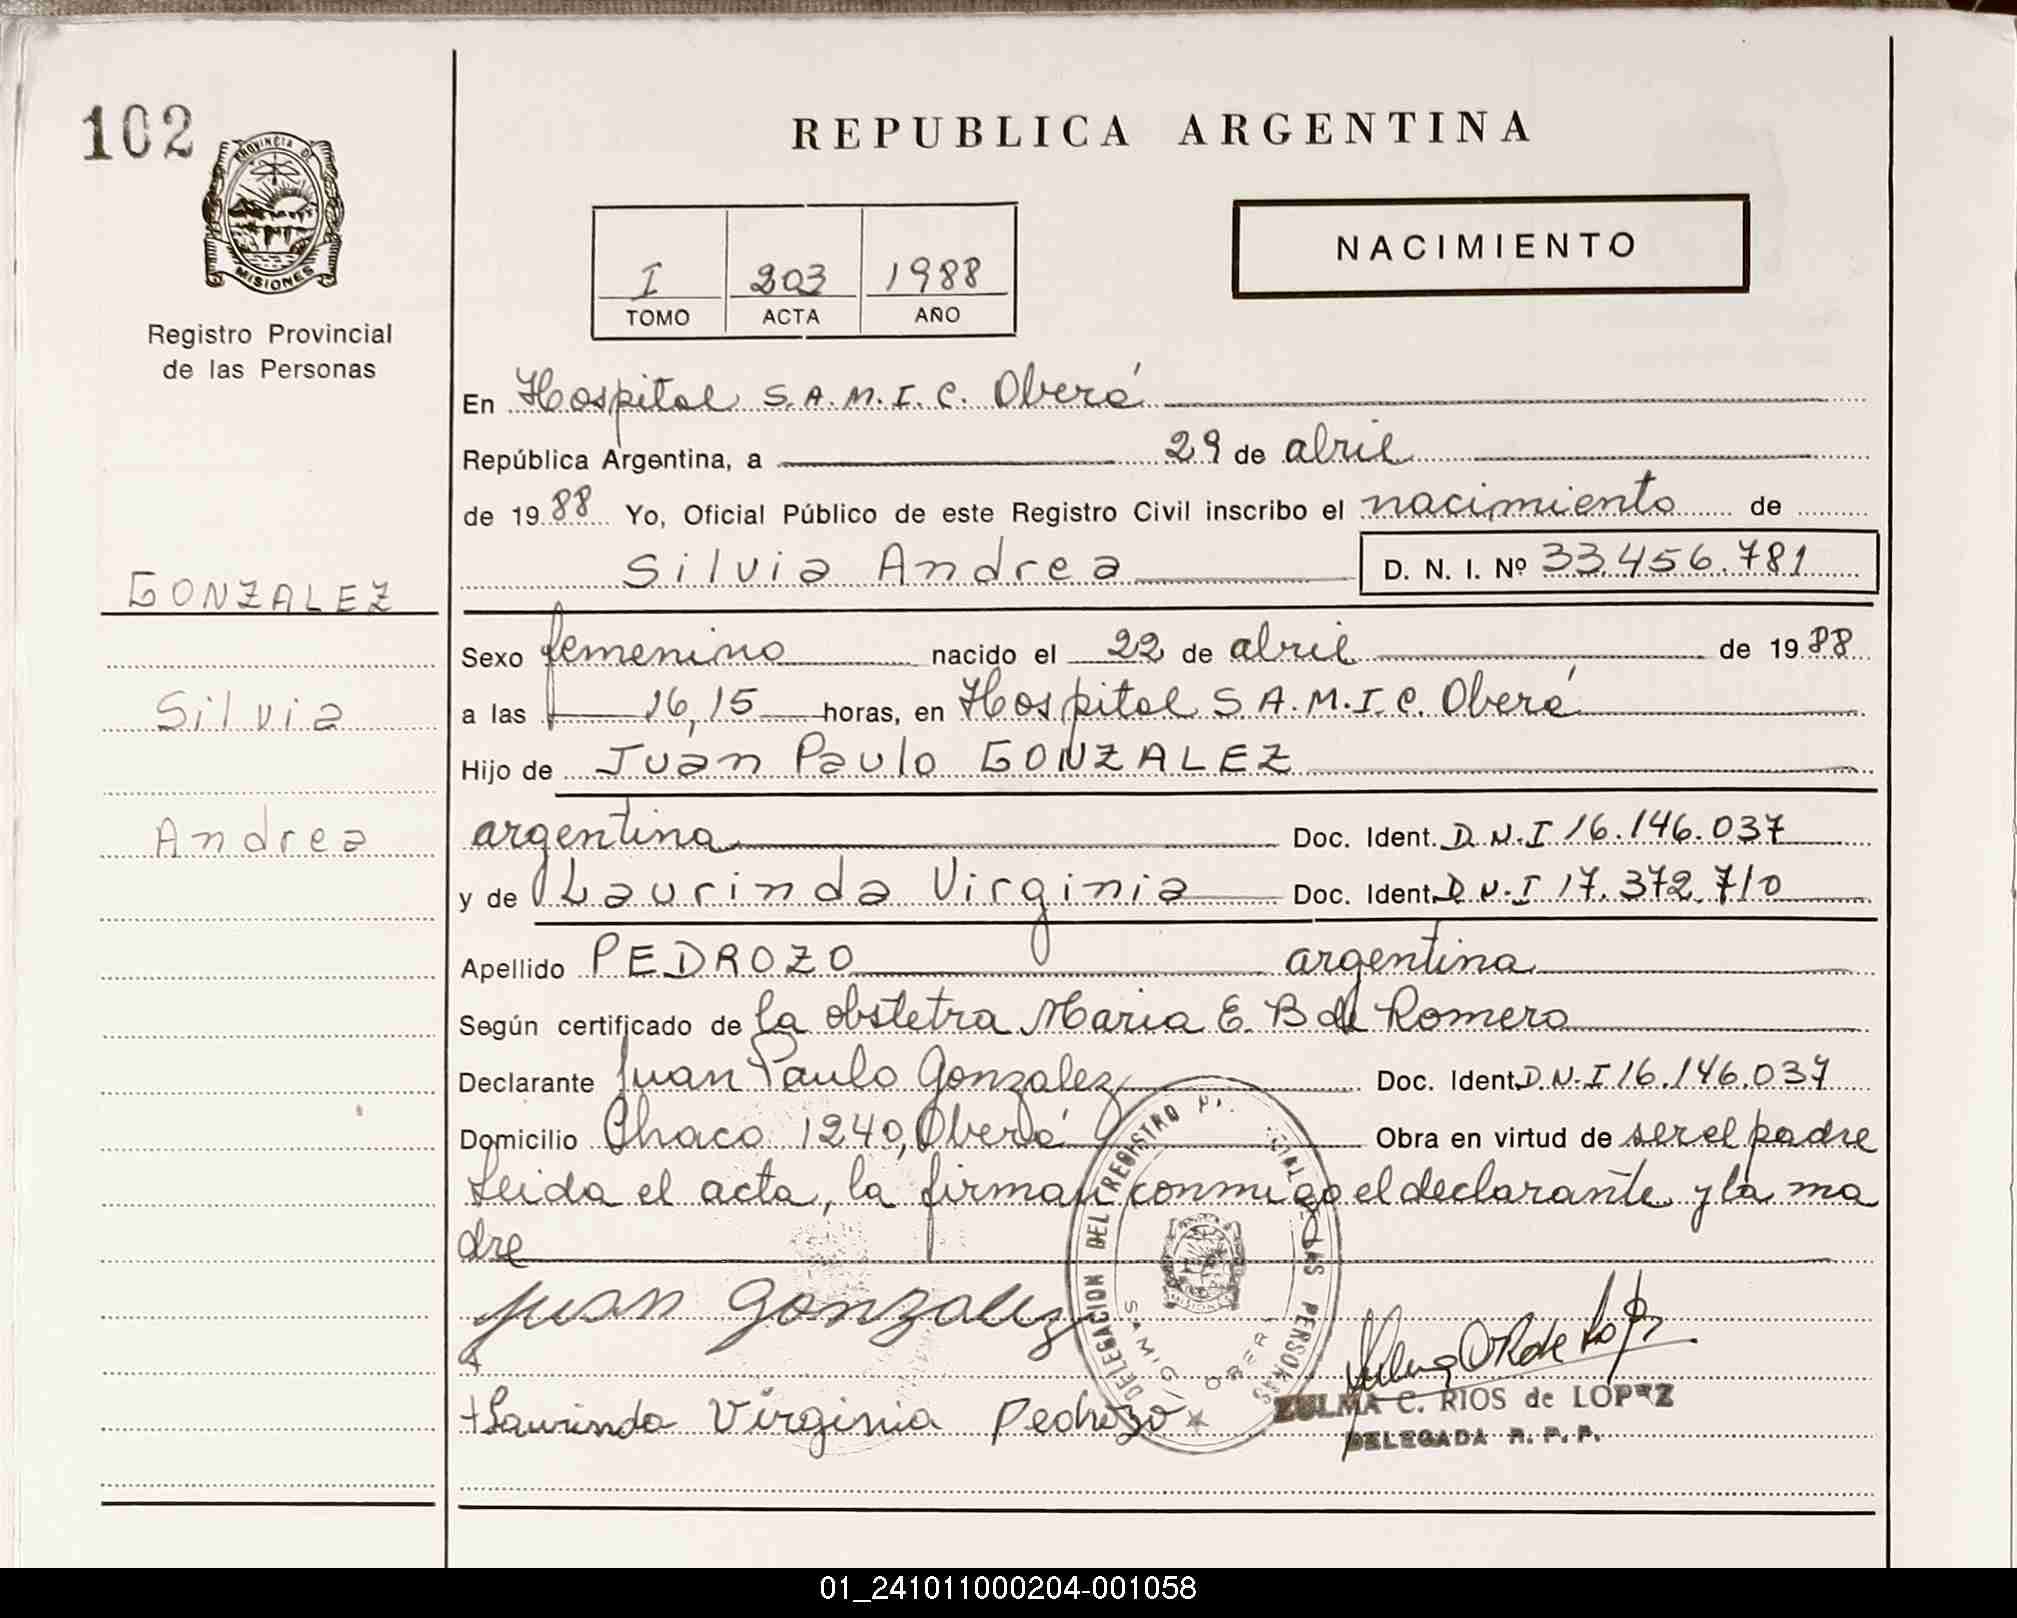 102
PROVINCIA DE
MISIONES
Registro Provincial
de las Personas
GONZALEZ
Silvia
Andrea
REPUBLICA ARGENTINA
I 203 1988
TOMO ACTA AÑO
NACIMIENTO
En Hospital S.A.M.I.C. Oberá
República Argentina, a 29 de abril
de 1988 Yo, Oficial Público de este Registro Civil inscribo el nacimiento de
Silvia Andrea D. N. I. Nº 33.456.781
Sexo femenino nacido el 22 de abril de 1988
a las 16,15 horas, en Hospital S.A.M.I.C. Oberá
Hijo de Juan Paulo GONZALEZ
argentina Doc. Ident. D.N.I 16.146.037
y de Laurinda Virginia Doc. Ident. D.N.I 17.372.710
Apellido PEDROZO argentina
Según certificado de la obstetra Maria E. B de Romero
Declarante Juan Paulo Gonzalez Doc. Ident. D.N.I 16.146.037
Domicilio Chaco 1240, Oberá Obra en virtud de ser el padre
Leida el acta, la firman conmigo el declarante y la ma
dre
DELEGACION DEL REGISTRO LAS PERSONAS
Juan Gonzalez
Laurinda Virginia Pedrozo
ZULMA C. RIOS de LOPEZ
DELEGADA R. P. P.
01_241011000204-001058